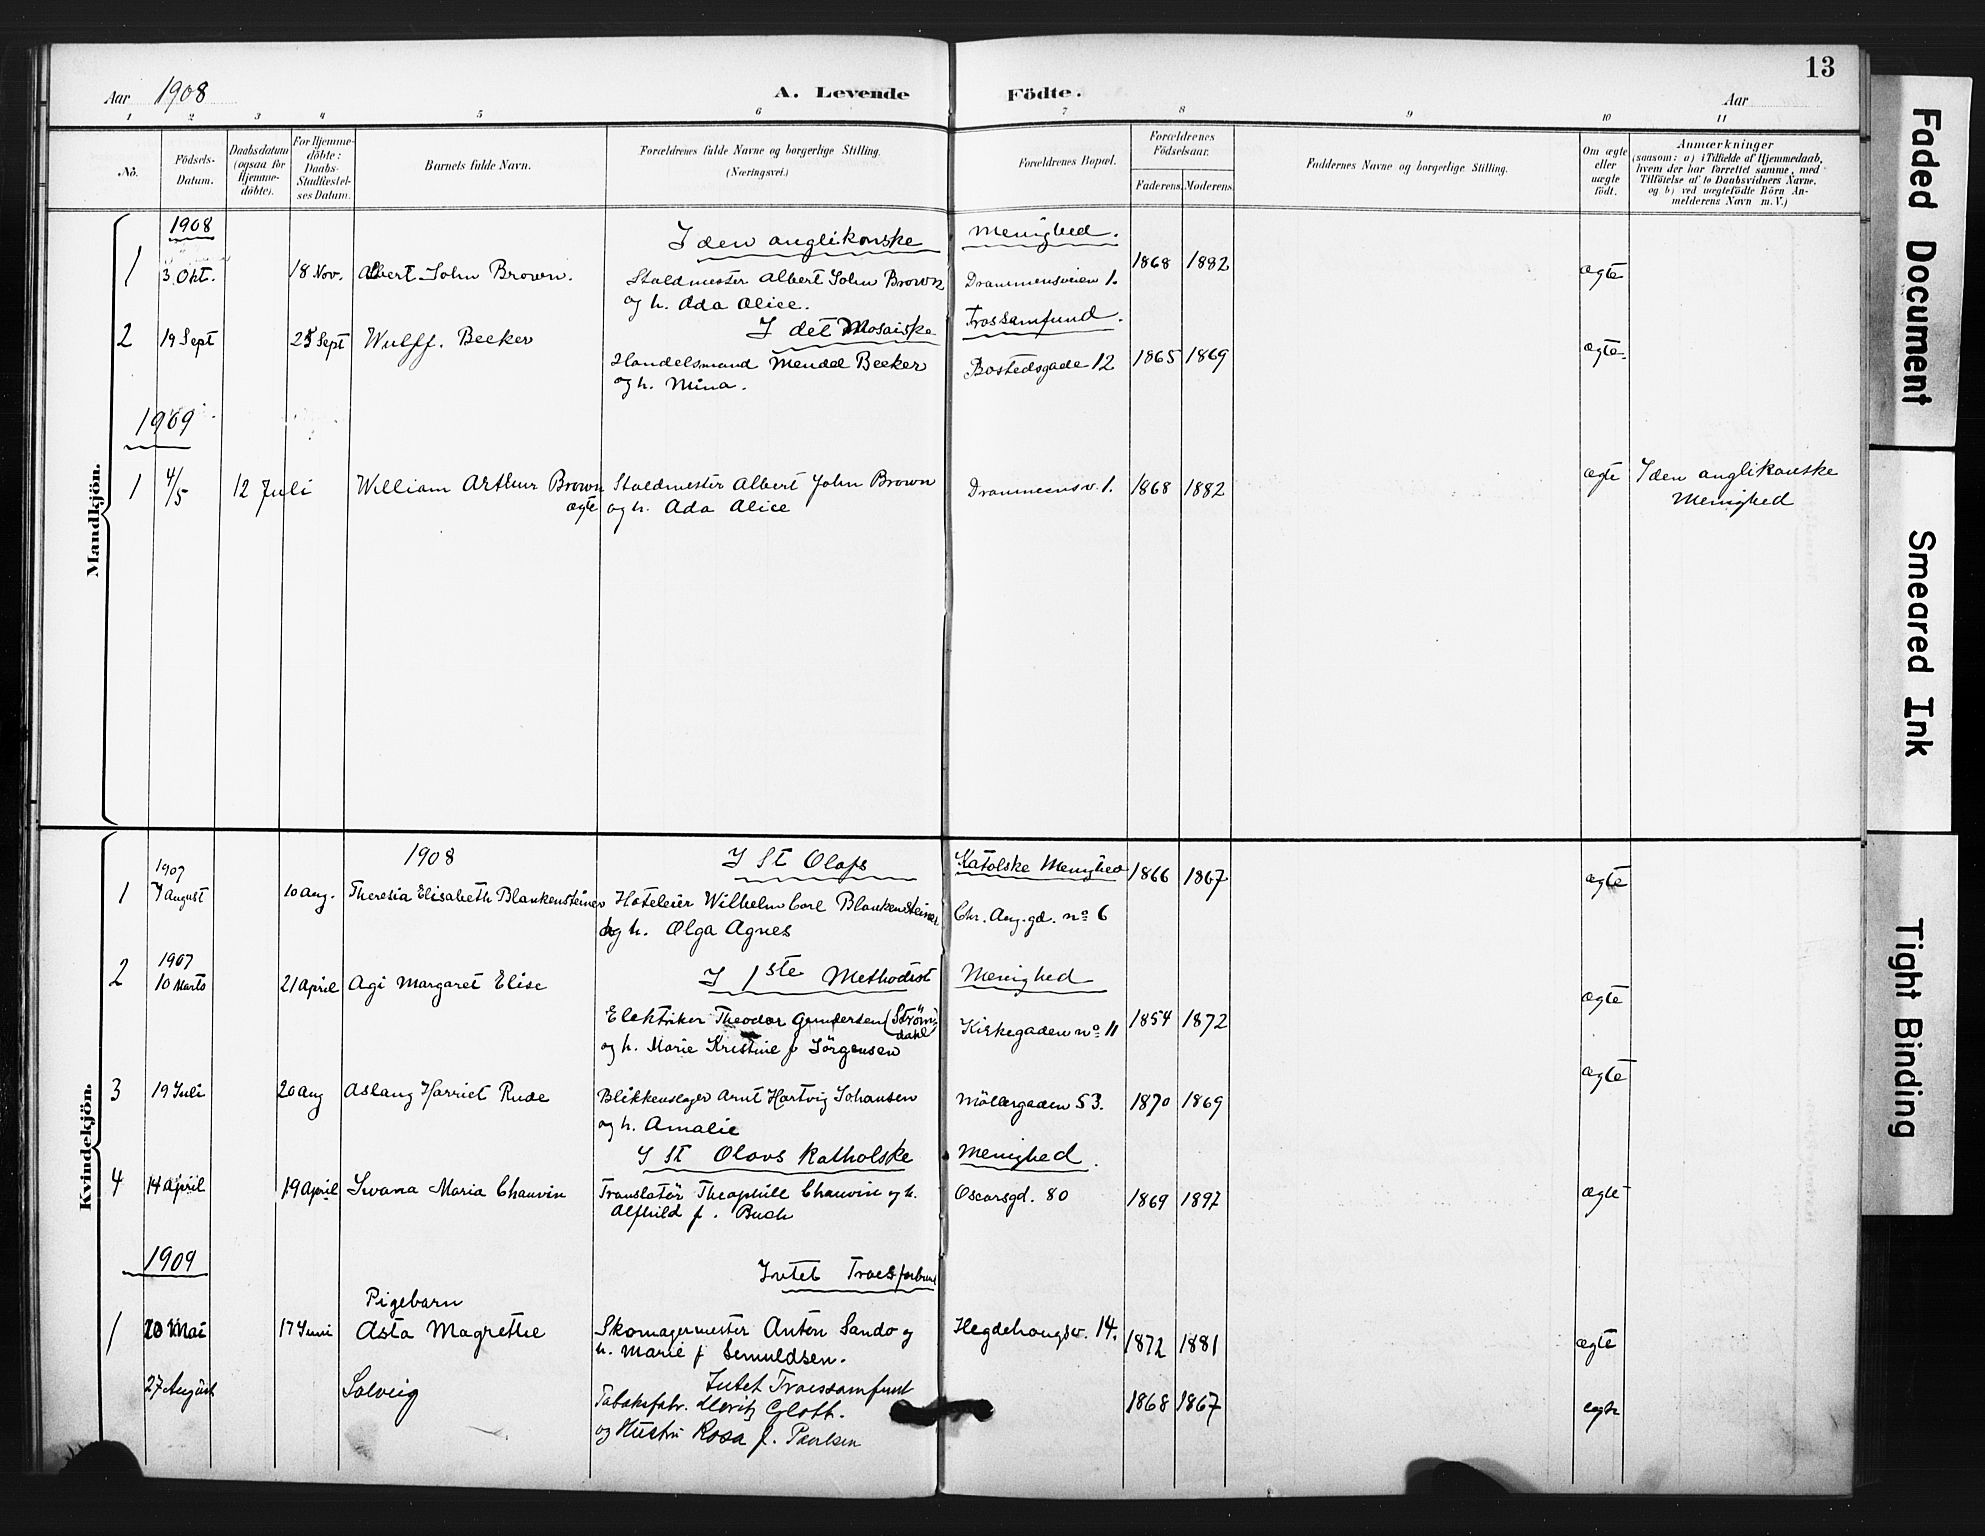 13
Aar 1908 A. Levende Födte. Aar
1 2 3 4 5 6 7 8 9 10 11
No. Födsels-Datum. Daabsdatum (ogsaa for Hjemmedöbte). For Hjemmedöbte: Daabs-Stadfæstelses Datum. Barnets fulde Navn. Forældrenes fulde Navne og borgerlige Stilling. (Næringsvei.) Forældrenes Bopæl. Forældrenes Födselsaar. Faderens. Moderens. Faddernes Navne og borgerlige Stilling. Om ægte eller uægte födt. Anmærkninger (saasom: a) i Tilfælde af Hjemmedaab, hvem der har forrettet samme, med Tilföielse af to Daabsvidners Navne, og b) ved uægtefödte Börn Anmelderens Navn m. V.)
Mandkjön.
1908
I den anglikanske Menighed.
1 3 Okt. 18 Nov. Albert John Brown. Staldmester Albert John Brown Drammensveien 1. 1868 1882 ægte
og h. Ada Alice.
I det Mosaiske Trossamfund.
2 19 Sept 25 Sept Wulff. Becker Handelsmand Mendel Becker Bostedsgade 12 1865 1869 ægte
og h. Mina.
1909
1 4/5 12 Juli William Arthur Brown Staldmester Albert John Brown Drammensv. 1. 1868 1882 ægte I den anglikanske
ægte og h. Ada Alice Menighed
Kvindekjön.
1908 I St Olafs Katolske Menighed
1907
1 7 August 10 Aug. Theresia Elisabeth Blankensteiner Hoteleier Wilhelm Carl Blankensteiner Chr. Aug. gd. no 6 1866 1867 ægte
og h. Olga Agnes
1907
2 10 Marts 21 April Agi Margaret Elise I 1ste Methodist Menighed ægte
Elektriker Theodor Gundersen (Strömdahl Kirkegaden no 11 1854 1872
og h. Marie Kristine f Jörgensen
3 19 Juli 20 Aug Aslaug Harriet Rude Blikkenslager Arnt Hartvig Johansen Möllergaden 53. 1870 1869 ægte
og h. Amalie
I St Olavs Katholske Menighed.
4 14 April 19 April Ivana Maria Chauvin Translatör Theophile Chauvin og h. Oscarsgd. 80 1869 1897 ægte
Alfhild f. Buch
1909
Intet Troesforbund
Pigebarn
1 20 Mai 17 Juni Asta Magrethe Skomagermester Anton Sando og Hegdehaugsv. 14. 1872 1881 ægte
h. Marie f Semuldsen.
27 August Solveig Intet Troessamfund
Tobaksfabr. Moritz Glott. 1868 1867 ægte
og Hustru Rosa f. Paulsen
Faded Document
Smeared Ink
Tight Binding